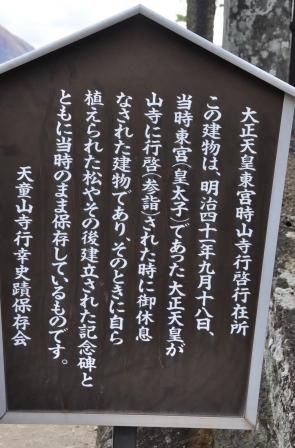 大正天皇東宮時山寺行啓行在所
この建物は、明治四十一年九月十八日、
当時東宮（皇太子）であった大正天皇が
山寺に行啓（参詣）された時に御休息
なされた建物であり、そのときに自ら
植えられた松やその後建立された記念碑と
ともに当時のまま保存しているものです。
天童山寺行幸史蹟保存会